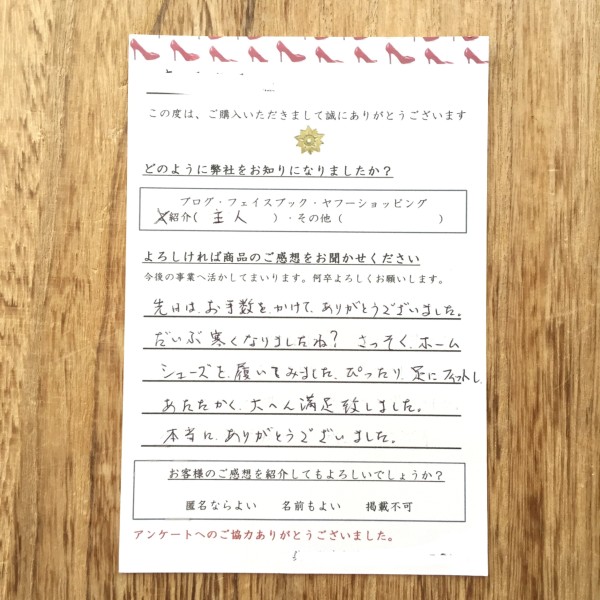 この度は、ご購入いただきまして誠にありがとうございます
どのように弊社をお知りになりましたか？
ブログ・フェイスブック・ヤフーショッピング
紹介（ 主人 ）・その他（ ）
よろしければ商品のご感想をお聞かせください
今後の事業へ活かしてまいります。何卒よろしくお願いします。
先日は、お手数を、かけて、ありがとうございました。
だいぶ寒くなりましたね？ さっそく、ホーム
シューズを、履いてみました、ぴったり、足にフィットし、
あたたかく、大へん満足致しました。
本当に、ありがとうございました。
お客様のご感想を紹介してもよろしいでしょうか？
匿名ならよい 名前もよい 掲載不可
アンケートへのご協力ありがとうございました。